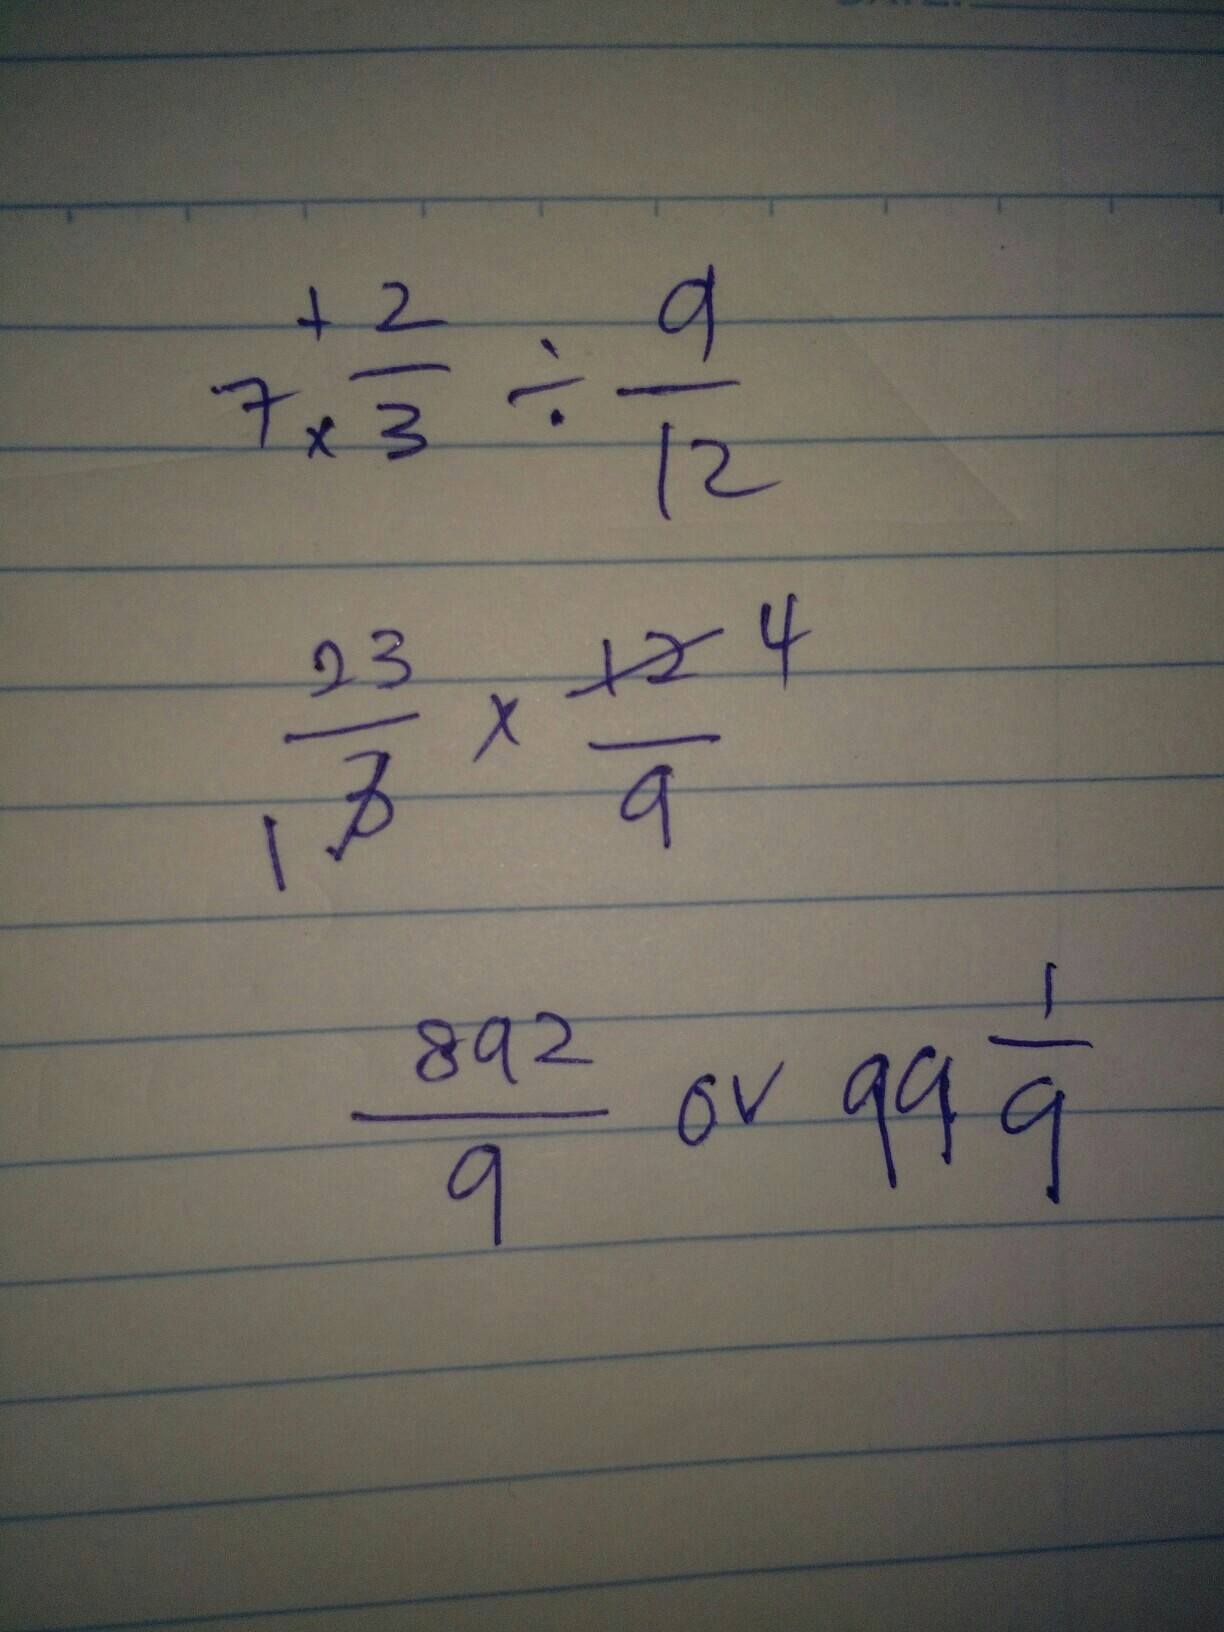 7 × + 2/3 ÷ 9/12
23/3 1 × 12/9 4
892/9 or 99 1/9